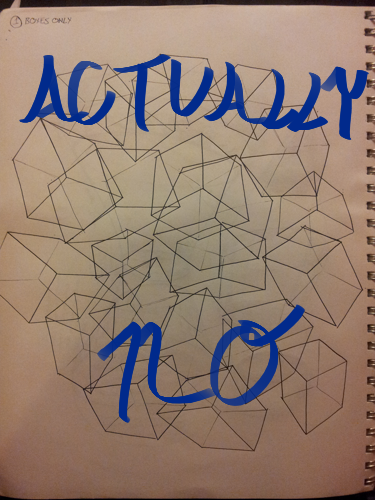 ① BOXES ONLY
ACTUALLY
no